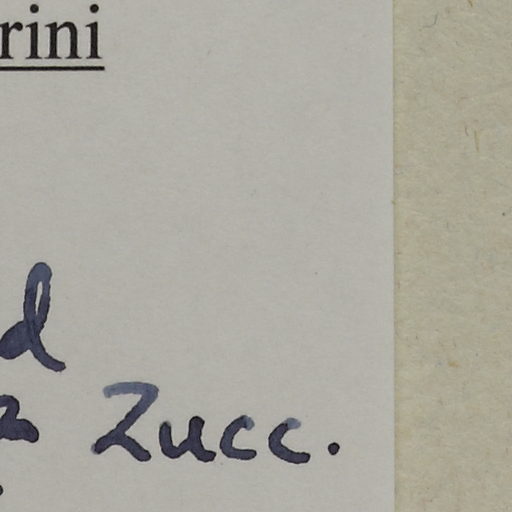 rini
d
Zucc.